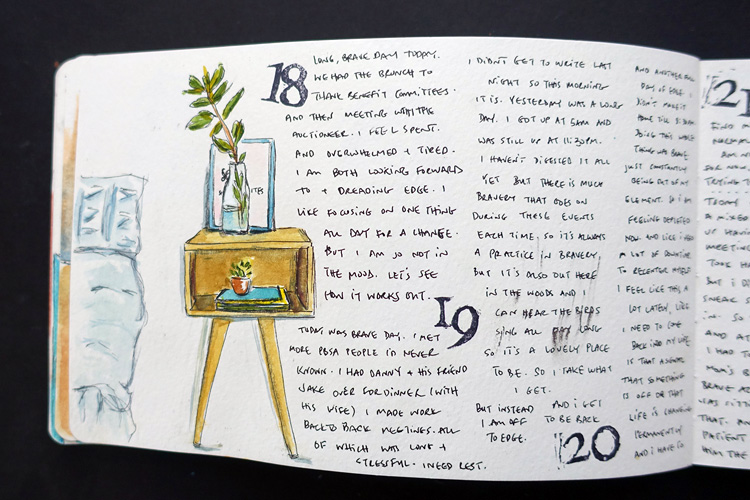 18
LONG, BRAVE DAY TODAY.
WE HAD THE BRUNCH TO
THANK BENEFIT COMMITTEES.
AND THEN MEETING WITH THE
AUCTIONEER. I FEEL SPENT.
AND OVERWHELMED + TIRED.
I AM BOTH LOOKING FORWARD
TO + DREADING EDGE. I
LIKE FOCUSING ON ONE THING
ALL DAY FOR A CHANGE.
BUT I AM SO NOT IN
THE MOOD. LET'S SEE
HOW IT WORKS OUT.
19
TODAY WAS BRAVE DAY. I MET
MORE PEOPLE I'D NEVER
KNOWN. I HAD DANNY + HIS FRIEND
JAKE OVER FOR DINNER (WITH
HIS WIFE) I MADE WORK
BACK TO BACK MEETINGS. ALL
OF WHICH WAS LONG +
STRESSFUL. I NEED REST.
I DIDN'T GET TO WRITE LAST
NIGHT SO THIS MORNING
IT IS. YESTERDAY WAS A LONG
DAY. I GOT UP AT 5AM AND
WAS STILL UP AT 11:30PM.
I HAVEN'T DIGESTED IT ALL
YET BUT THERE IS MUCH
BRAVERY THAT GOES ON
DURING THESE EVENTS
EACH TIME. SO IT'S ALWAYS
A PRACTICE IN BRAVERY.
BUT IT'S ALSO OUT HERE
IN THE WOODS AND I
CAN HEAR THE BIRDS
SING ALL DAY LONG
SO IT'S A LOVELY PLACE
TO BE. SO I TAKE WHAT
I GET.
BUT INSTEAD AND I GET
I AM OFF TO BE BACK
TO EDGE.
20
AND ANOTHER
DAY OF EDGE. I
DIDN'T MAKE IT
HOME TILL
DOING THIS WHOLE
THING WAS BRAVE
JUST CONSTANTLY
BEING OUT OF MY
ELEMENT. SO I AM
FEELING DEPLETED
NOW. AND LIKE I NEED
A LOT OF DOWNTIME
TO RECENTER MYSELF
I FEEL LIKE THIS A
LOT LATELY, LIKE
I NEED TO
BACK INTO MY LIFE.
IS THAT A
THAT SOMETHING
IS OFF OR THAT
LIFE IS CHANGING
PERMANENTLY
AND I HAVE TO
21
FIND A
AM
FOR NOW.
TRYING T
TODAY
A MIXED
UP HAVIN
MEETING
TOOK
BUT I D
SNEAK
IN. SO
AND AT
I HAD T
MOM'S B
BRAVE A
WAS SITT
THAT. AN
PATIENT
HIM THE